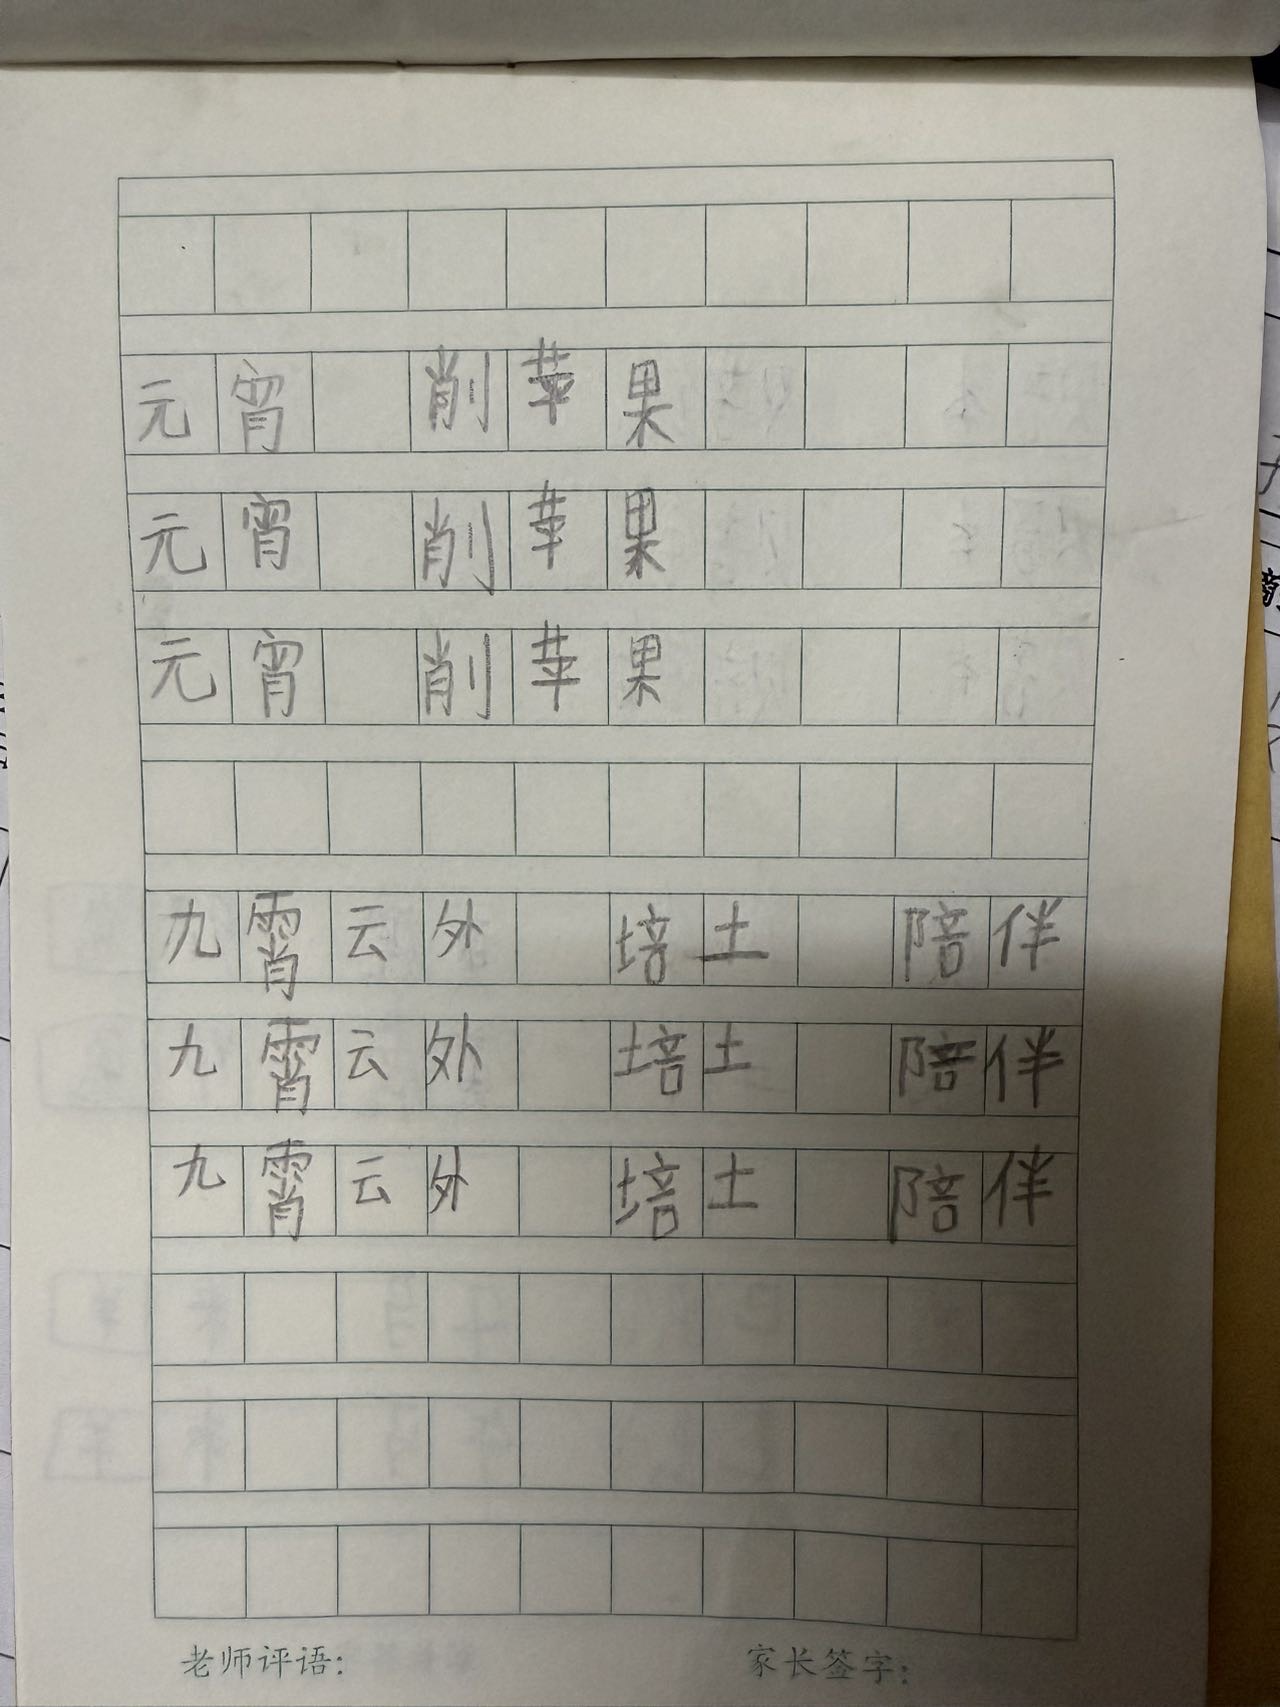 元宵 削苹果
元宵 削苹果
元宵 削苹果
九霄云外 培土 陪伴
九霄云外 培土 陪伴
九霄云外 培土 陪伴
老师评语： 家长签字：